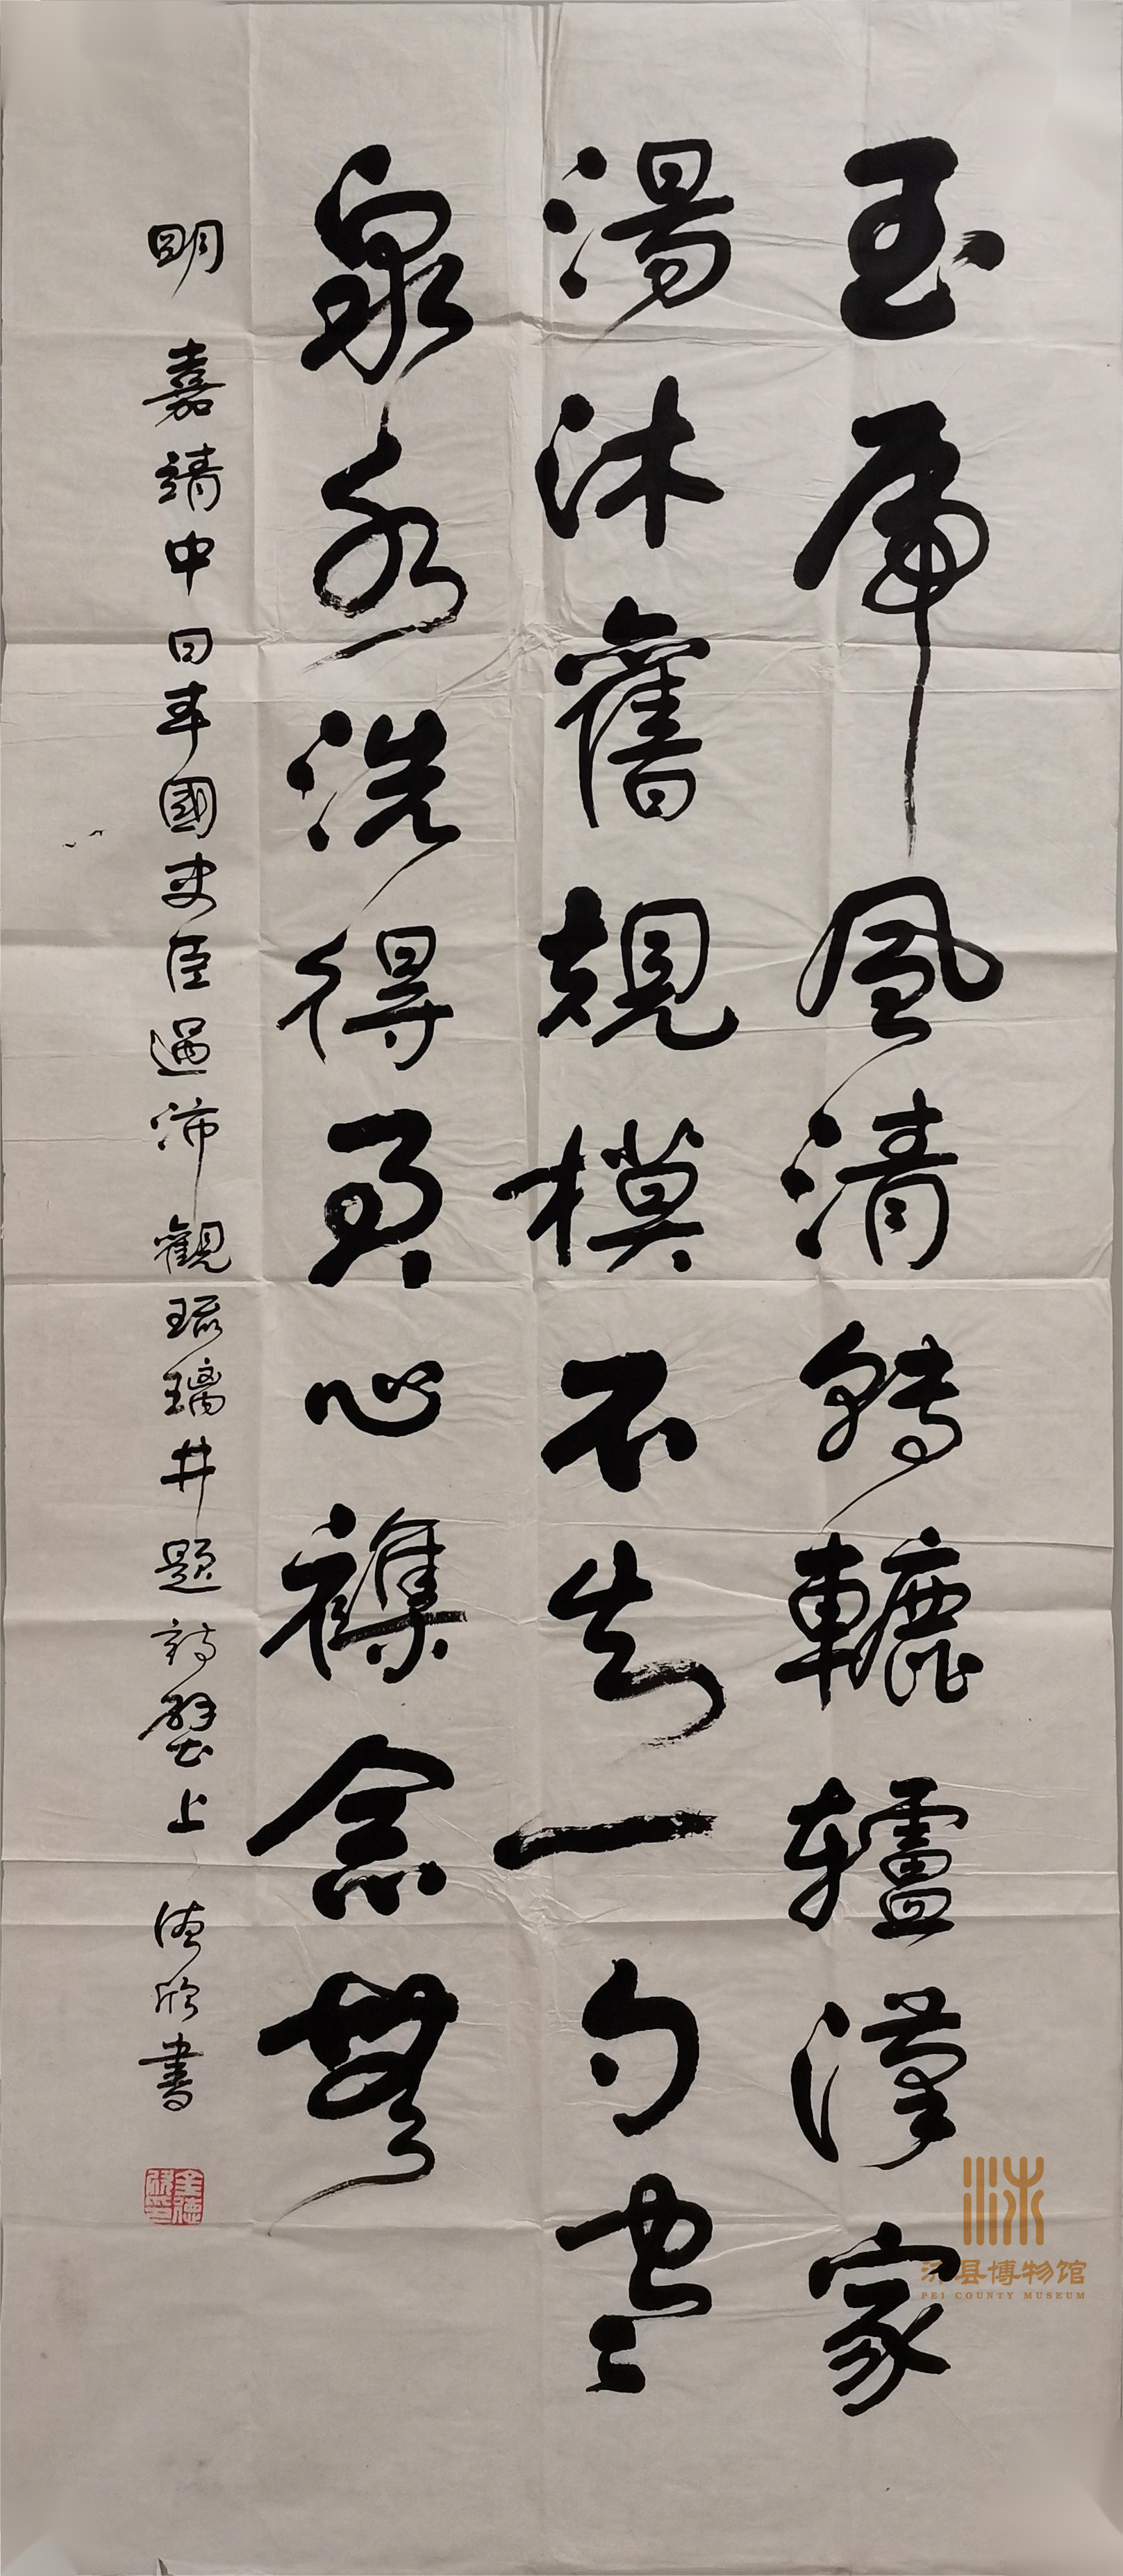 玉虎風清轉轆轤漢家
湯沐舊規模不失一勺寒
泉水洗得身心襍念無
明 嘉靖中 同年國史臣過沛觀琉璃井題詩壁上 德欣書
沛县博物馆
PEI COUNTY MUSEUM